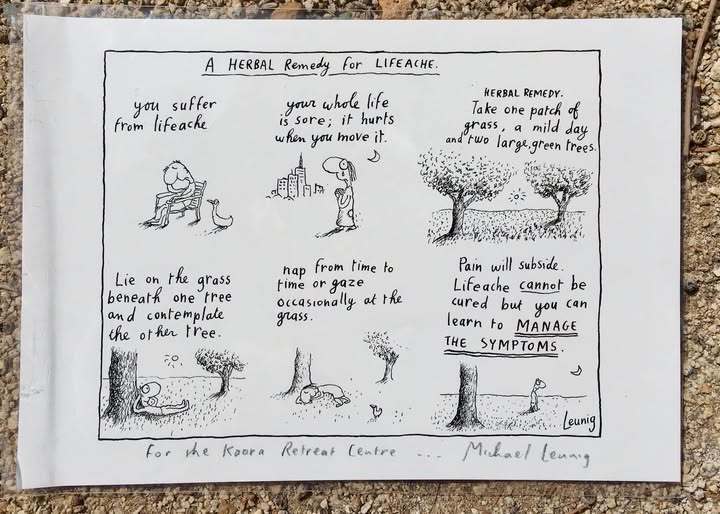 A HERBAL Remedy for LIFEACHE.
you suffer
from lifeache
your whole life
is sore; it hurts
when you move it.
HERBAL REMEDY.
Take one patch of
grass, a mild day
and two large, green trees.
Lie on the grass
beneath one tree
and contemplate
the other tree.
nap from time to
time or gaze
occasionally at the
grass.
Pain will subside.
Lifeache cannot be
cured but you can
learn to MANAGE
THE SYMPTOMS.
Leunig
For the Koora Retreat Centre ... Michael Leunig